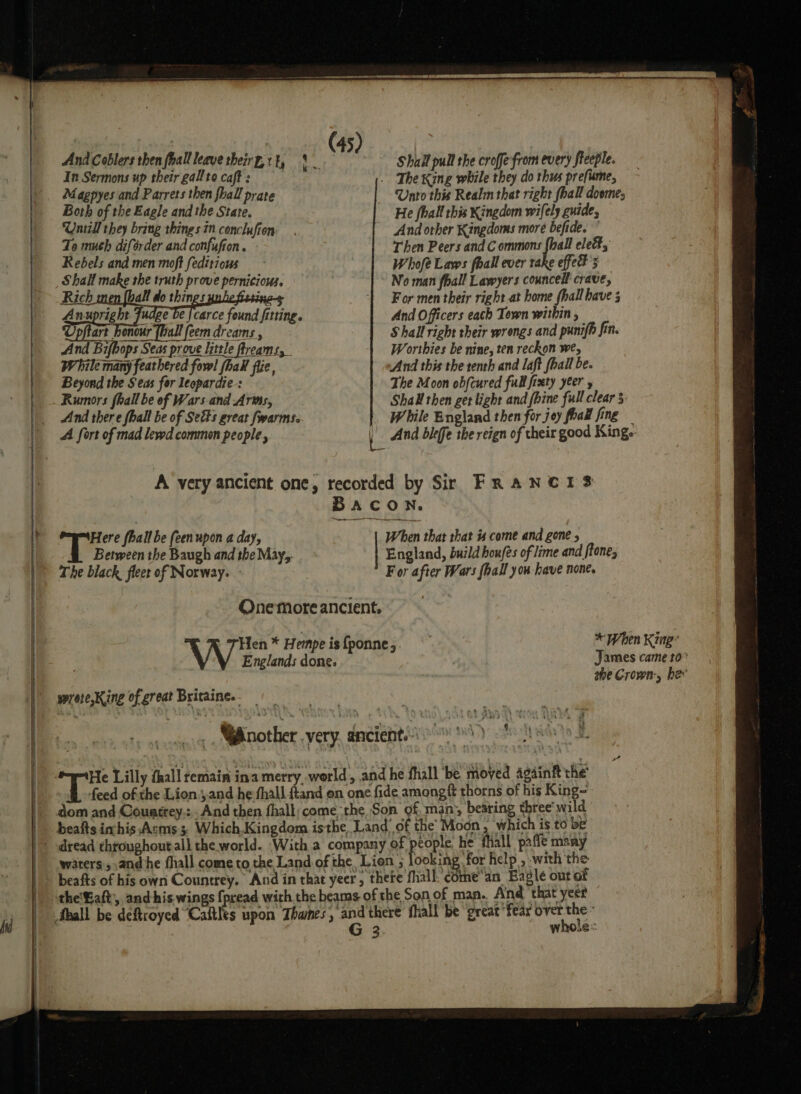 (45)
And Coblers then ſhall leave their
In Sermons up their gall to caſt :
Magpyes and Parrets then ſhall prate
Both of the Eagle and the State.
Untill they bring things in concluſion
To much diſorder and confuſion.
Rebels and men moſt ſeditious
Shall make the truth prove pernicious.
Rich men ſhall do things unbefitting
An upright Judge be ſcarce found fitting.
Upſtart honour ſhall ſeem dreams ,
And Biſhops Seas prove little ſtreams,
While many feathered fowl ſhall flie,
Beyond the Seas for Ieopardie :
Rumors ſhall be of Wars and Arms,
And there ſhall be of Sects great ſwarms.
A ſort of mad lewd common people,
Shall pull the croſſe from every ſteeple.
The King while they do thus preſume,
Unto this Realm that right ſhall doome,
He ſhall this Kingdom wiſely guide,
And other Kingdoms more beſide.
Then Peers and Commons ſhall elect,
Whoſe Laws ſhall ever take effect ;
No man ſhall Lawyers councell crave,
For men their right at home ſhall have ;
And Officers each Town within ,
Shall right their wrongs and puniſh ſin.
Worthies be nine, ten reckon we,
And this the tenth and laſt ſhall be.
The Moon obſcured full ſixty yeer ,
Shall then get light and ſhine full clear ;
While England then for joy ſhall ſing
And bleſſe the reign of their good King.
A very ancient one, recorded by Sir FRANCIS
BACON.
THere ſhall be ſeen upon a day,
Between the Baugh and the May,
The black fleet of Norway.
When that that is come and gone ,
England, build houſes of lime and ſtone,
For after Wars ſhall you have none.
One more ancient.
WHen * Hempe is ſponne,
Englands done.
* When King
James came to
the Crown, he
wrote, King of great Britaine.
Another very ancient.
THe Lilly ſhall remain in a merry world, and he ſhall be moved againſt the
ſeed of the Lion, and he ſhall ſtand on one ſide amongſt thorns of his King-
dom and Countrey : And then ſhall come the Son of man, bearing three wild
beaſts in his Arms ; Which Kingdom is the Land of the Moon, which is to be
dread throughout all the world. With a company of people he ſhall paſſe many
waters, and he ſhall come to the Land of the Lion ; looking for help, with the
beaſts of his own Countrey. And in that yeer, there ſhall come an Eagle out of
the Eaſt, and his wings ſpread with the beams of the Son of man. And that yeer
ſhall be deſtroyed Caſtles upon Thames, and there ſhall be great fear over the
G 3
whole